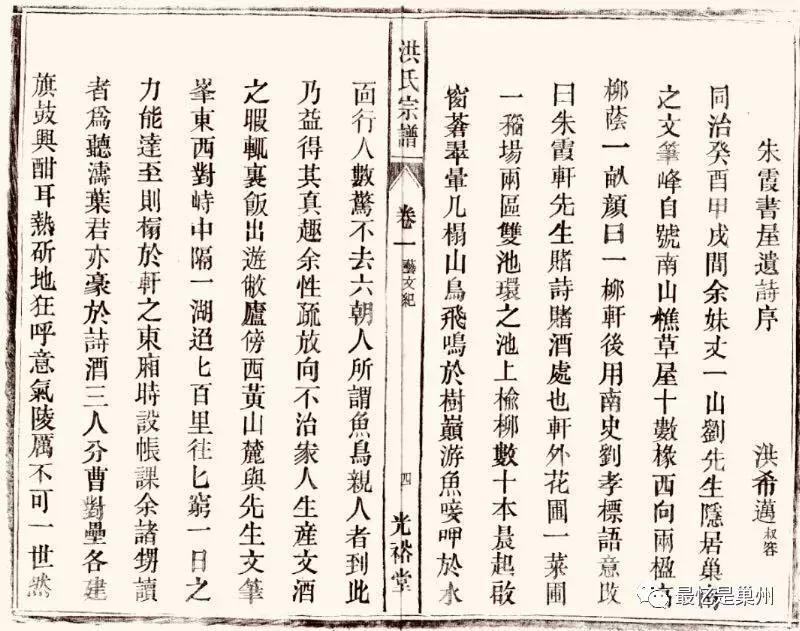 朱霞書屋遺詩序 洪希邁 叔容
同治癸酉甲戌間余妹丈一山劉先生隱居巢
之文筆峰自號南山樵草屋十數椽西向兩楹
柳蔭一畝顏曰一柳軒後用南史劉孝標語意改
曰朱霞軒先生賭詩賭酒處也軒外花圃一菜圃
一稻場兩區雙池環之池上榆柳數十本晨起啟
窗蒼翠暈几榻山鳥飛鳴於樹巔游魚唼呷於水
洪氏宗譜 卷一 藝文紀 四 光裕堂
面行人數驚不去六朝人所謂魚鳥親人者到此
乃益得其真趣余性疏放向不治家人生產文酒
之暇輒裹飯出遊敝廬傍西黃山麓與先生文筆
峯東西對峙中隔一湖迢匕百里往匕窮一日之
力能達至則榻於軒之東廂時設帳課余諸甥讀
者為聽濤葉君亦豪於詩酒三人分曹對壘各建
旗鼓興酣耳熱斫地狂呼意氣陵厲不可一世然
最忆是巢州